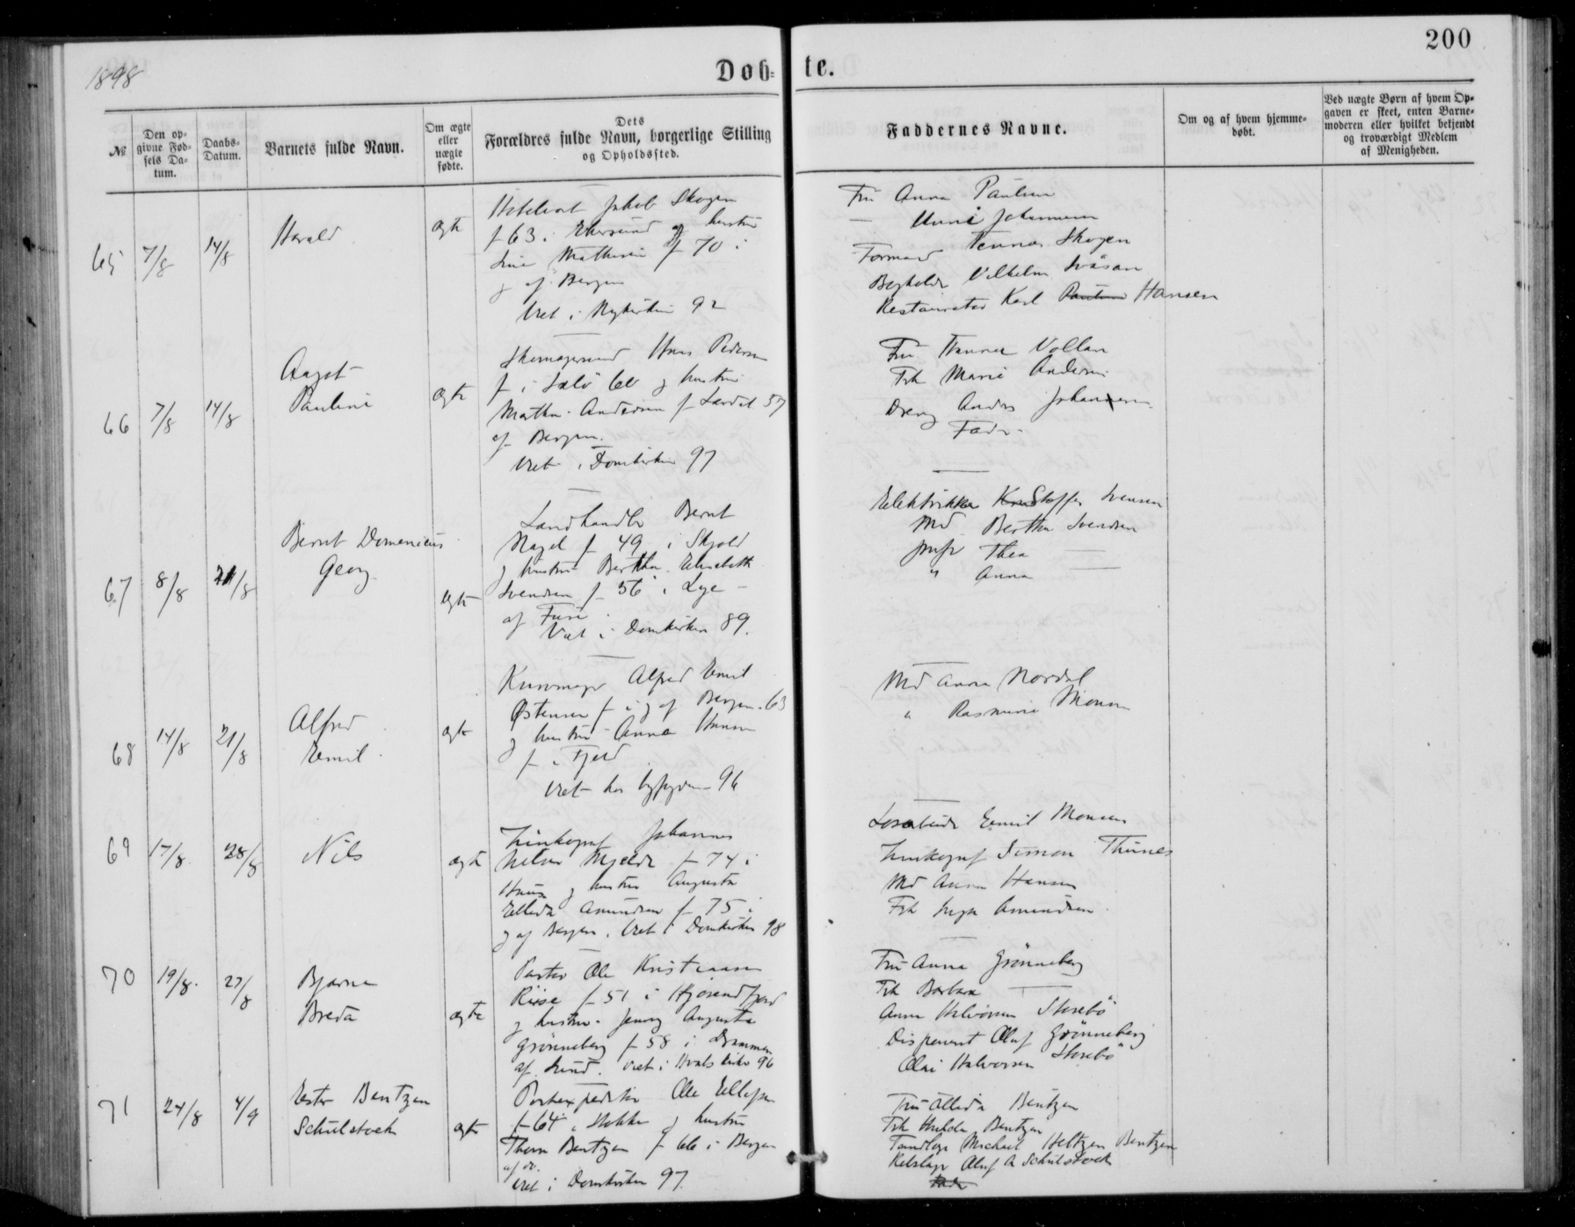 200
1898
Døb=te.
№
Den op-
givne Fød-
sels Da-
tum.
Daabs-
Datum.
Barnets fulde Navn.
Om ægte
eller
uægte
fødte.
Dets
Forældres fulde Navn, borgerlige Stilling
og Opholdssted.
Faddernes Navne.
Om og af hvem hjemme-
døbt.
Ved uægte Børn af hvem Op-
gaven er skeet, enten Barne-
moderen eller hvilket bekjendt
og troværdigt Medlem
af Menigheden.
65
7/8
14/8
Harald
ægte
Jakob Skogen
f 63 i Ekersund og hustru
f 70 i
og af Bergen
Viet i Nykirken 92
Fru Anna Paulsen
Johannesen
Formand Skogen
Bogholder Vilhelm
Restauratør Karl Hansen
66
7/8
14/8
Aagot
Pauline
ægte
Skomagersvend Hans Pedersen
f i 60 og hustru
Andersen f Lærdal 57
af Bergen.
Viet i Domkirken 97
Fru Hanna Vollan
Frk Marie Andersen
Dreng Anders Johansen
Fader
67
8/8
21/8
Bernt Domenicus
Georg
ægte
Landhandler Bernt
Nagel f 49 i Skjold
og hustru Bertha Elisabeth
Svendsen f 56 i Lye
af Fuse
Viet i Domkirken 89.
Elektriker Svensen
Md Bertha Svendsen
Jmfr Thea —
" Anna —
68
14/8
21/8
Alfred
Emil
ægte
Kurvmager Alfred Emil
Østensen f i og af Bergen 63
og hustru Anna Hansen
f i Fjeld
Viet hos byfogden 96
Md Anna Nordal
" Rasmine Monsen
69
17/8
28/8
Nils
ægte
Zinkograf Johannes
Nilsen Mjelde f 74 i
Haus og hustru Augusta
Ellida Amundsen f 75 i
og af Bergen. Viet i Domkirken 98
Emil Monsen
Zinkograf Simon Thunes
Md Anna Hansen
Frk Inga Amundsen
70
19/8
27/8
Bjarne
Breda
ægte
Pastor Ole Kristiansen
Riise f 51 i Hjørendfjord
og hustru Jenny Augusta
Grønneberg f 58 i Drammen
af Lund. Viet i kirke 96
Fru Anna Grønneberg
Frk Barbara —
Anna Halvorsen Storebø
Disponent Oluf Grønneberg
Olai Halvorsen Storebø
71
24/8
4/9
Ester Bentzen
Schulstock
ægte
Postexpeditør Ole Ellefsen
f 64 i Stokke og hustru
Thora Bentzen f 66 i Bergen
af do.
Viet i Domkirken 97
Fru Allida Bentzen
Frk Hulda Bentzen
Tandlæge Michael Heltzen Bentzen
Oluf A Schulstock
Fader